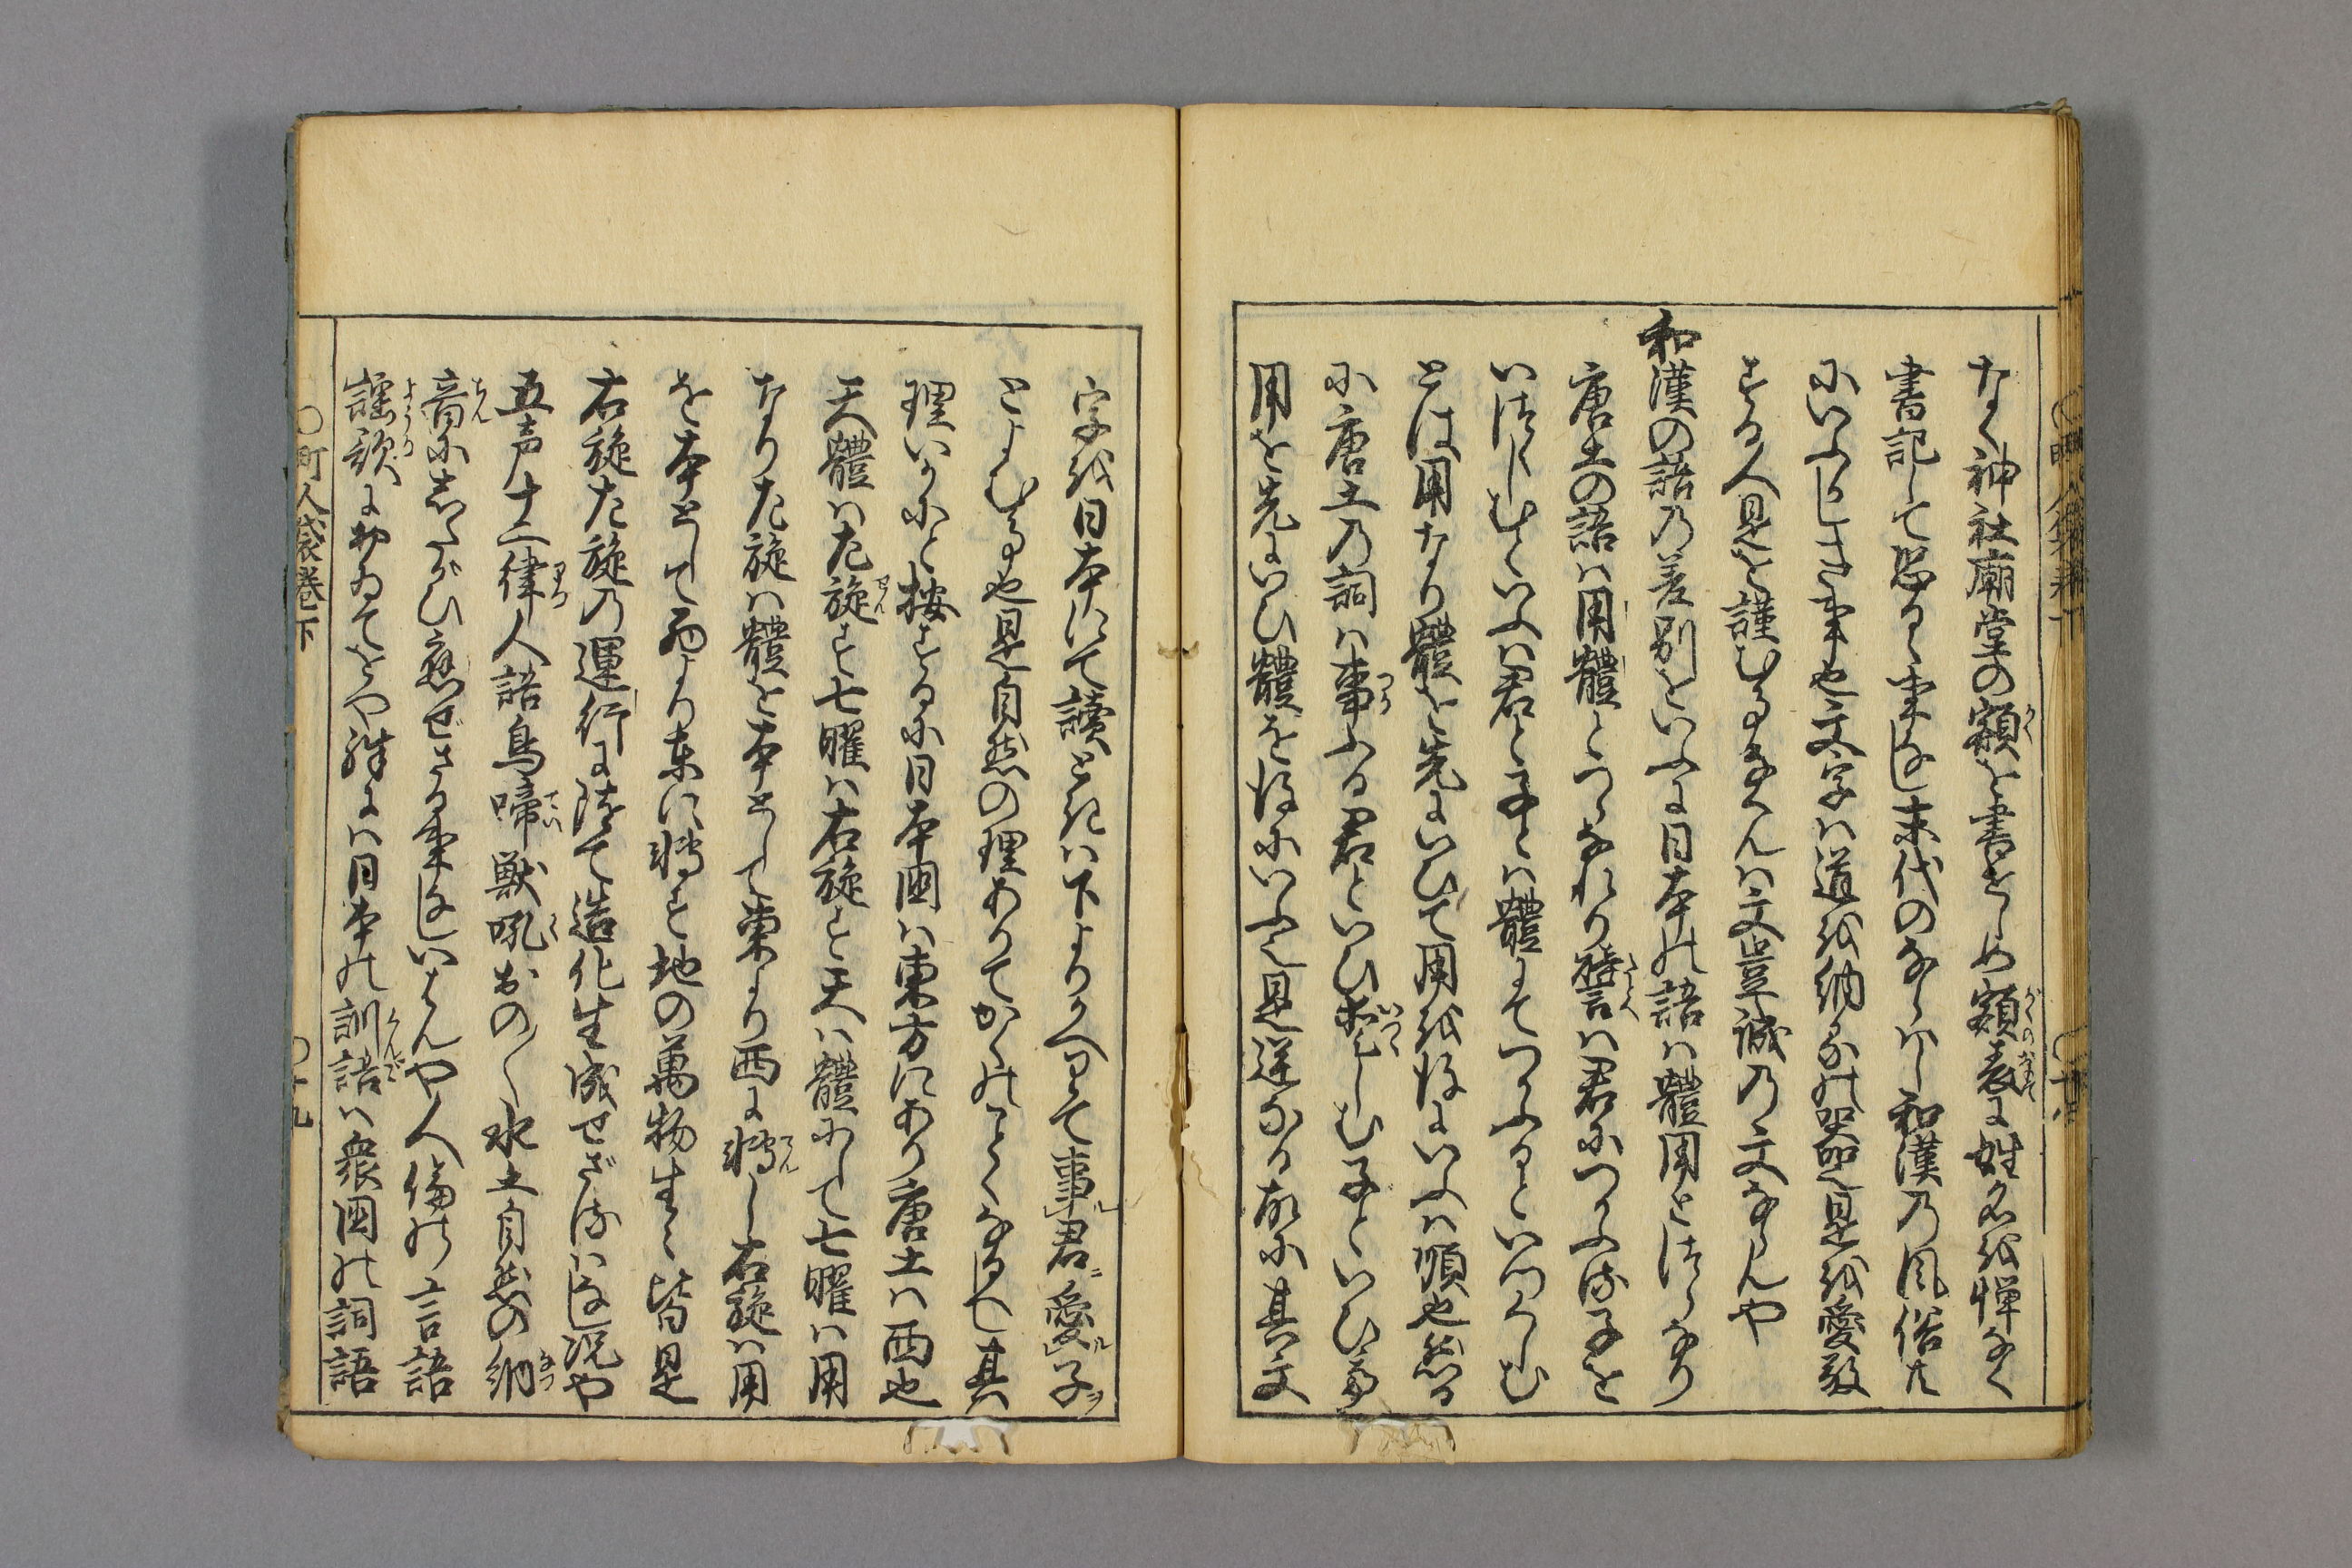 なく神社廟堂の額を書をしめ額表に姓名を憚なく
書記して恐るゝ事なし末代のならはし和漢の風俗共
にいふじき事也文字は道を納るの器也是を愛敬
する人是を謹むるならんは文豈誠の文ならんや
和漢の語の差別をいふに日本の語は體用とつゝなり
唐土の語は用體とつゝなれり譬は君につかふ子を
いつくしむといふは君と子とは體にてつかふるといつくしむ
とは用なり體を先にいひて用を後にいふは順也然る
に唐土の詞は事ふる君といひ愛しむ子といひて
用を先にいひ體を後にいふ是逆なる故に其文
字を日本にて讀ときは下よりかへりて事ル君ニ愛ル子ヲ
とよむる也是自然の理ありてかくのことくなるべし其
理いかにと按ずるに日本国は東方にあり唐土は西也
天體は左旋す七曜は右旋す天は體にして七曜は用
なり左旋は體を本として東より西に轉し右旋は用
を本として西より東に轉す地の萬物生ずる皆是
右旋左旋の運行に隨て造化生成せざるはなし況や
五声十二律人語鳥啼獣吼おの〱水土自然の納
音にしたがひ応ぜざる事なしいはんや人倫の言語
謡歌におゐてをや殊には日本の訓語は衆国の詞語
〇町人袋巻下
〇十九